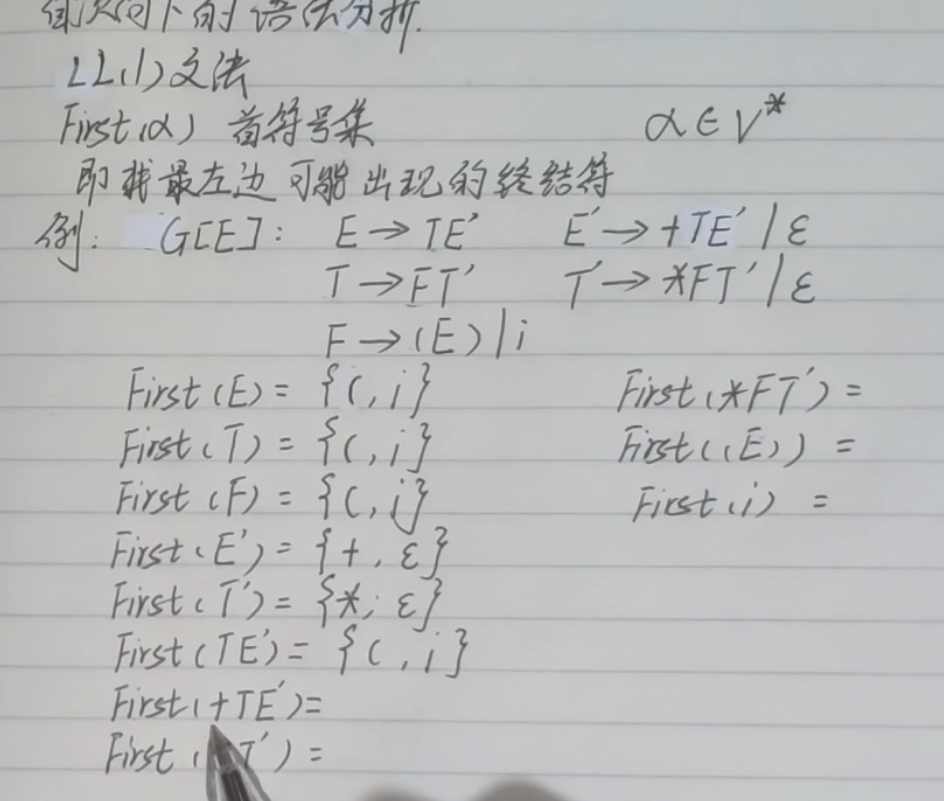 的语法分析.
LL(1)文法
First(α) 首符号集 α∈V*
即找最左边可能出现的终结符
例: G[E]: E→TE' E'→+TE'|ε
T→FT' T'→*FT'|ε
F→(E)|i
First(E)={(,i} First(*FT')=
First(T)={(,i} First((E))=
First(F)={(,i} First(i)=
First(E')={+,ε}
First(T')={*,ε}
First(TE')={(,i}
First(+TE')=
First( T')=